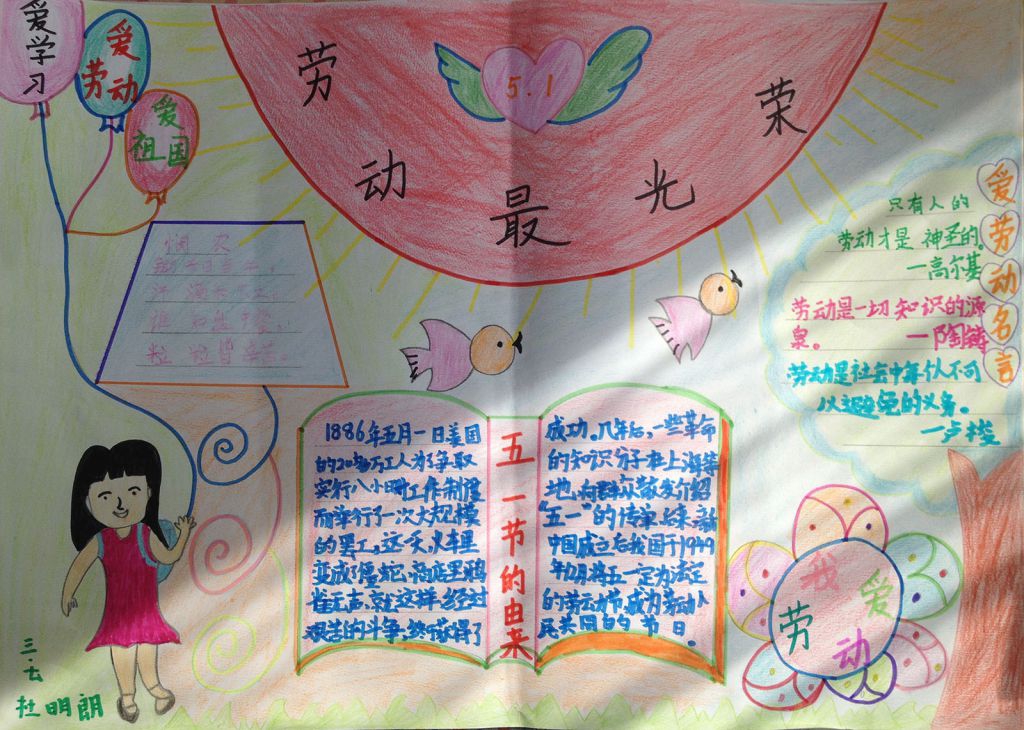 爱学习
爱劳动
爱祖国
劳动最光荣
5.1
悯农
粒粒皆辛苦。
1886年五月一日美国
的20多万工人为了争取
实行八小时工作制度
而举行了一次大规模
的罢工,这一天,火车里
变成了僵蛇,商店里鸦
雀无声,就这样,经过
艰苦的斗争,终于获得了
五一节的由来
成功。几年后,一些革命
的知识分子在上海等
地,向群众散发介绍
"五一"的传单,后来,新
中国成立后我国于1949
年12月将五一定为法定
的劳动节,成为劳动人
民共同的节日。
爱劳动名言
只有人的
劳动才是神圣的。
—高尔基
劳动是一切知识的源
泉。—陶铸
劳动是社会中每个人不可
以避免的义务。
—卢梭
我爱劳动
三.七
杜明朗